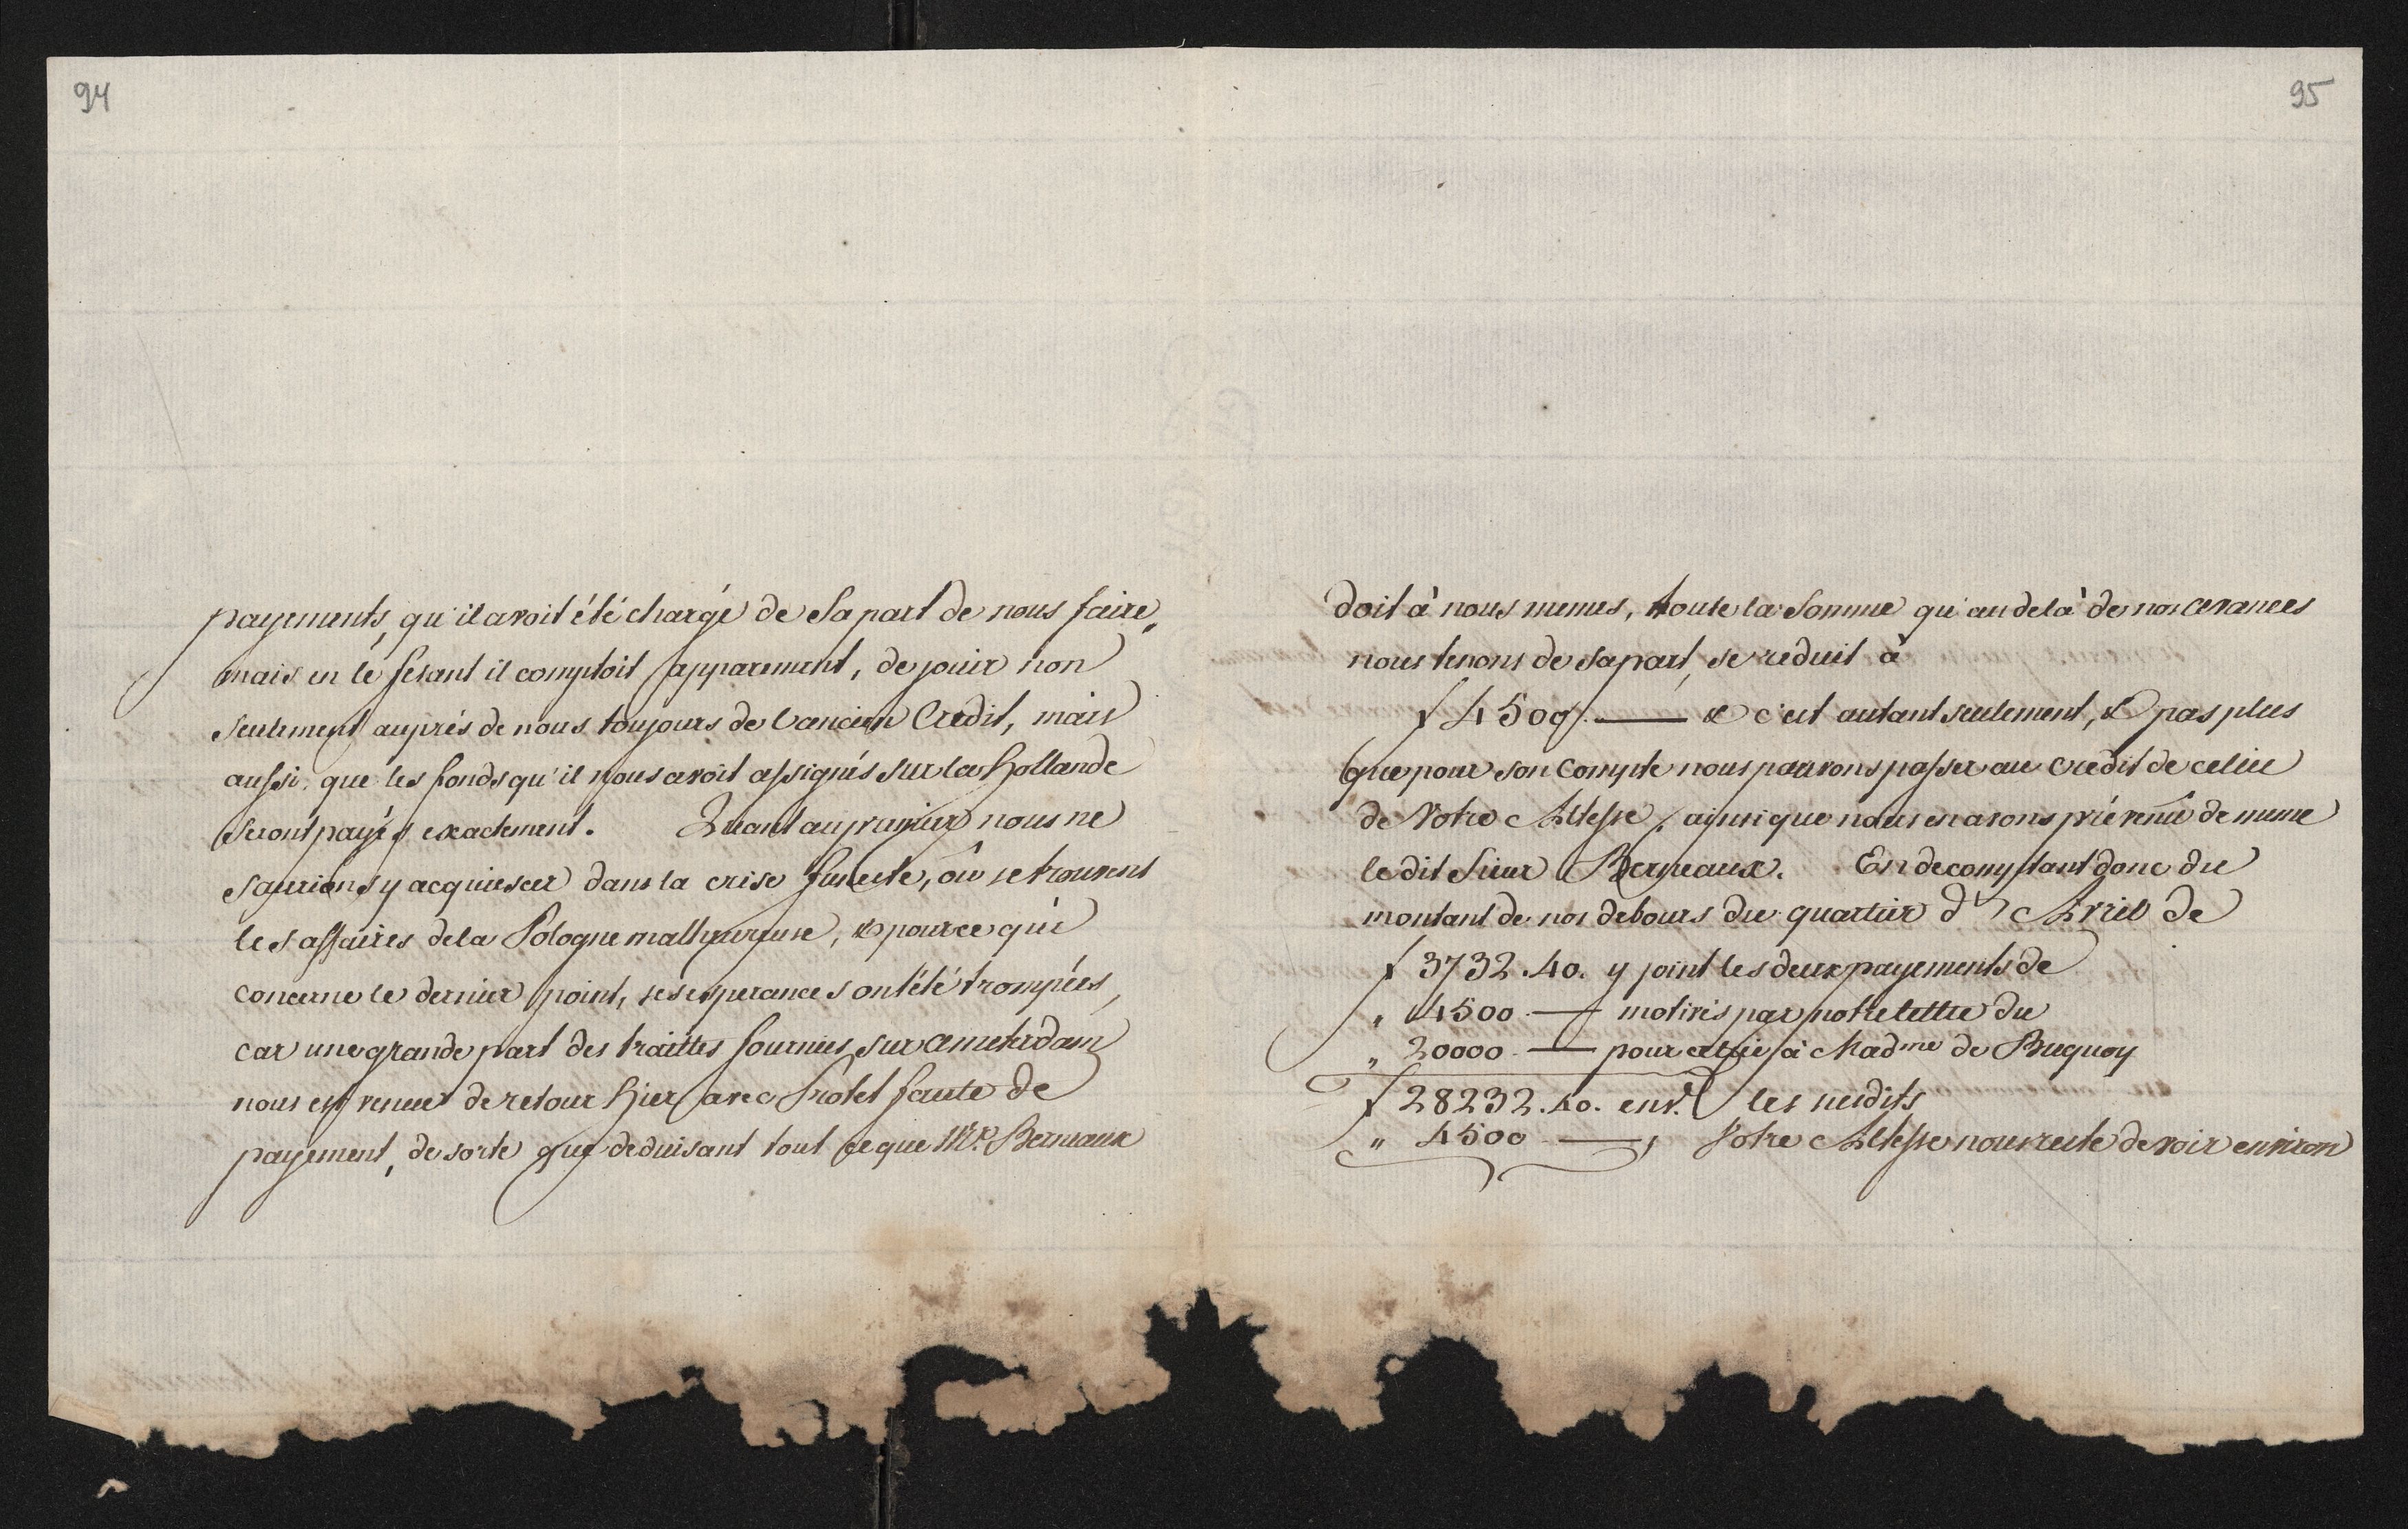 94
payements, qu'il avoit été chargé de Sa part de nous faire,
mais en le fesant il comptoit apparement, de jouir non
seulement auprés de nous toujours de l'ancien Credit, mais
aussi, que les fonds qu'il nous avoit assignés sur la Hollande
seront payés exactement. Quant au premier nous ne
saurions y acquiescer dans la crise funeste, où se trouvent
les affaires de la Pologne malheureuse, & pour ce qui
concerne le dernier point, ses esperances ont été trompées,
car une grande part des traittes fournies sur Amsterdam
nous est venue de retour hier avec Protet faute de
payement, de sorte que deduisant tout ce que Mr. Berneaux
95
doit à nous memes, toute la Somme qu'au delà de nos avances
nous tenons de sa part, se reduit à
f 4500. — & c'est autant seulement, & pas plus
que pour son Compte nous pouvons passer au Credit de celui
de Votre Altesse, ainsi que nous en avons prévenû de meme
le dit Sieur Berneaux. En decomptant donc du
montant de nos debours du quartier d' Avril de
f 3732.40. y joint les deux payements de
„ 4500 — motivés par notre lettre du
„ 20000 — pour celui à Madme de Buquoy
f 28232.40. env. les susdits
„ 4500 —, Votre Altesse nous reste devoir environ